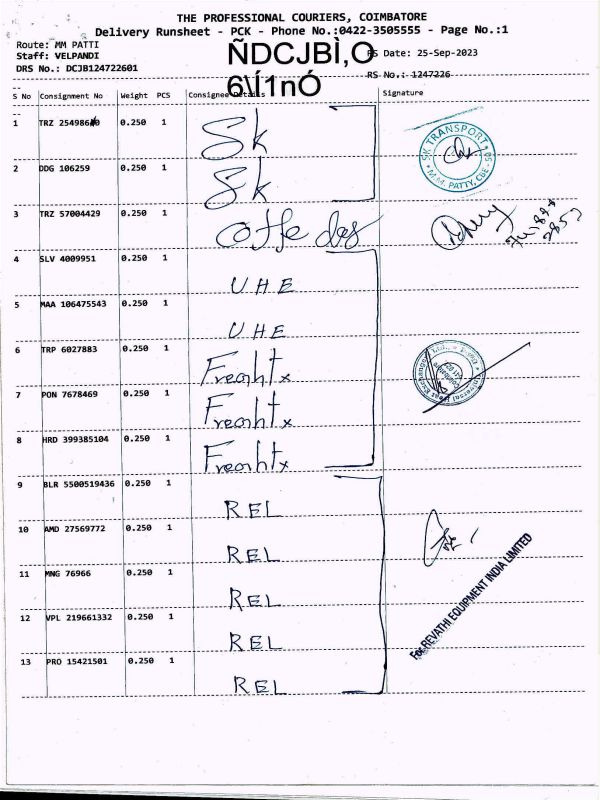 THE PROFESSIONAL COURIERS, COIMBATORE
Delivery Runsheet - PCK - Phone No.:0422-3505555 - Page No.:1
Route: MM PATTI
Staff: VELPANDI
DRS No.: DCJB124722601
ÑDCJBÌ,O
6\Í1nÓ
RS Date: 25-Sep-2023
RS No.: 1247226
S No Consignment No Weight PCS Consignee Details Signature
1 TRZ 0.250 1 Sk
SK TRANSPORT
M.M. PATTY, CBE
2 DDG 106259 0.250 1 Sk
3 TRZ 57004429 0.250 1
4 SLV 4009951 0.250 1 UHE
5 MAA 106475543 0.250 1 UHE
6 TRP 6027883 0.250 1 Freahtx
7 PON 7678469 0.250 1 Freahtx
8 HRD 399385104 0.250 1 Freahtx
9 BLR 5500519436 0.250 1 REL
10 AMD 27569772 0.250 1 REL
11 MNG 76966 0.250 1 REL
12 VPL 219661332 0.250 1 REL
13 PRO 15421501 0.250 1 REL
For REVATHI EQUIPMENT INDIA LIMITED